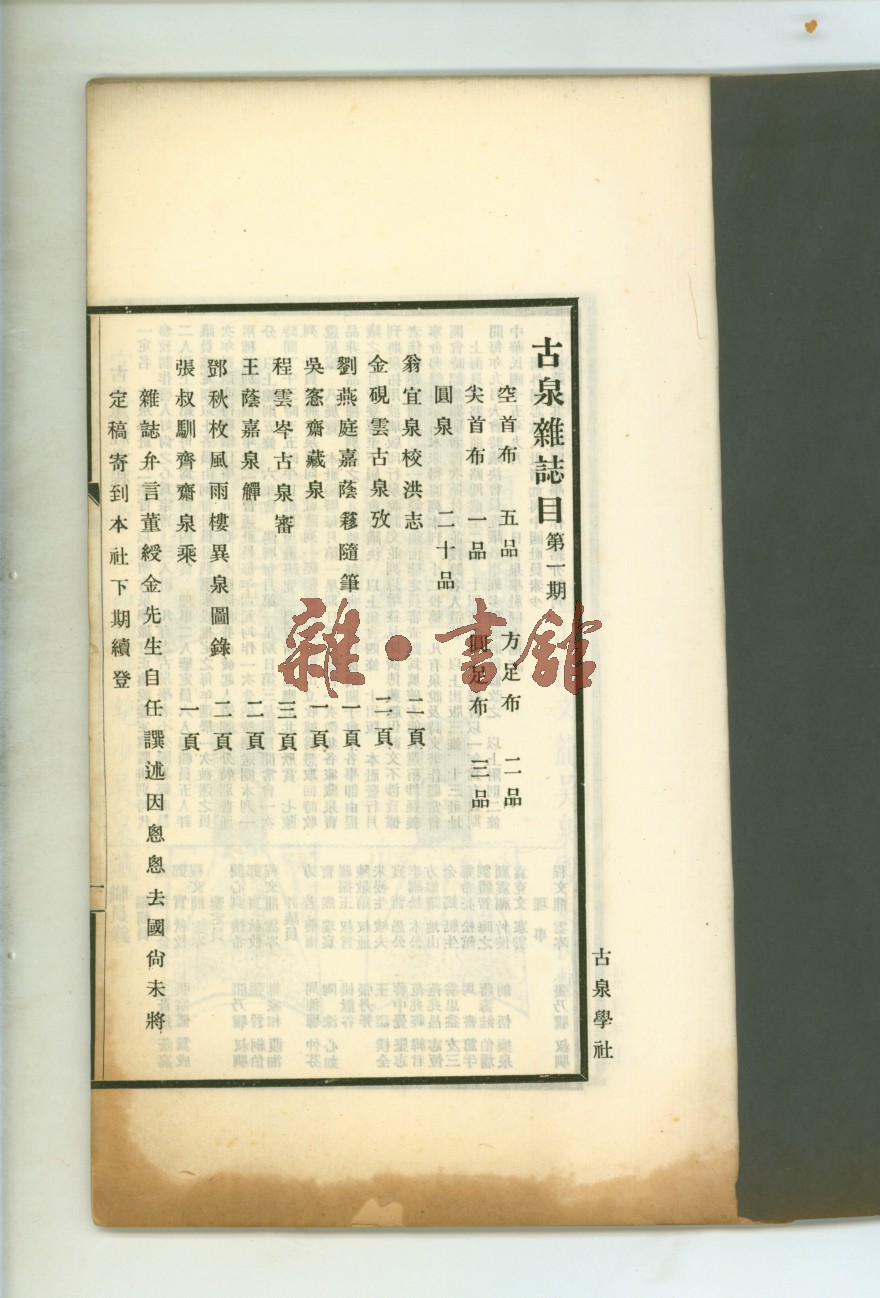 古泉雜誌目第一期
空首布 五品 方足布 二品
尖首布 一品 圓足布 三品
圓泉 二十品
翁宜泉校洪志 二頁
金硯雲古泉攷 二頁
劉燕庭嘉蔭簃隨筆 一頁
吳愙齋藏泉 一頁
程雲岑古泉審 三頁
王蔭嘉泉觶 二頁
鄧秋枚風雨樓異泉圖錄 二頁
張叔馴齊齋泉乘 一頁
雜誌弁言董綬金先生自任譔述因悤悤去國尙未將
定稿寄到本社下期續登
一
古泉學社
雜·書館